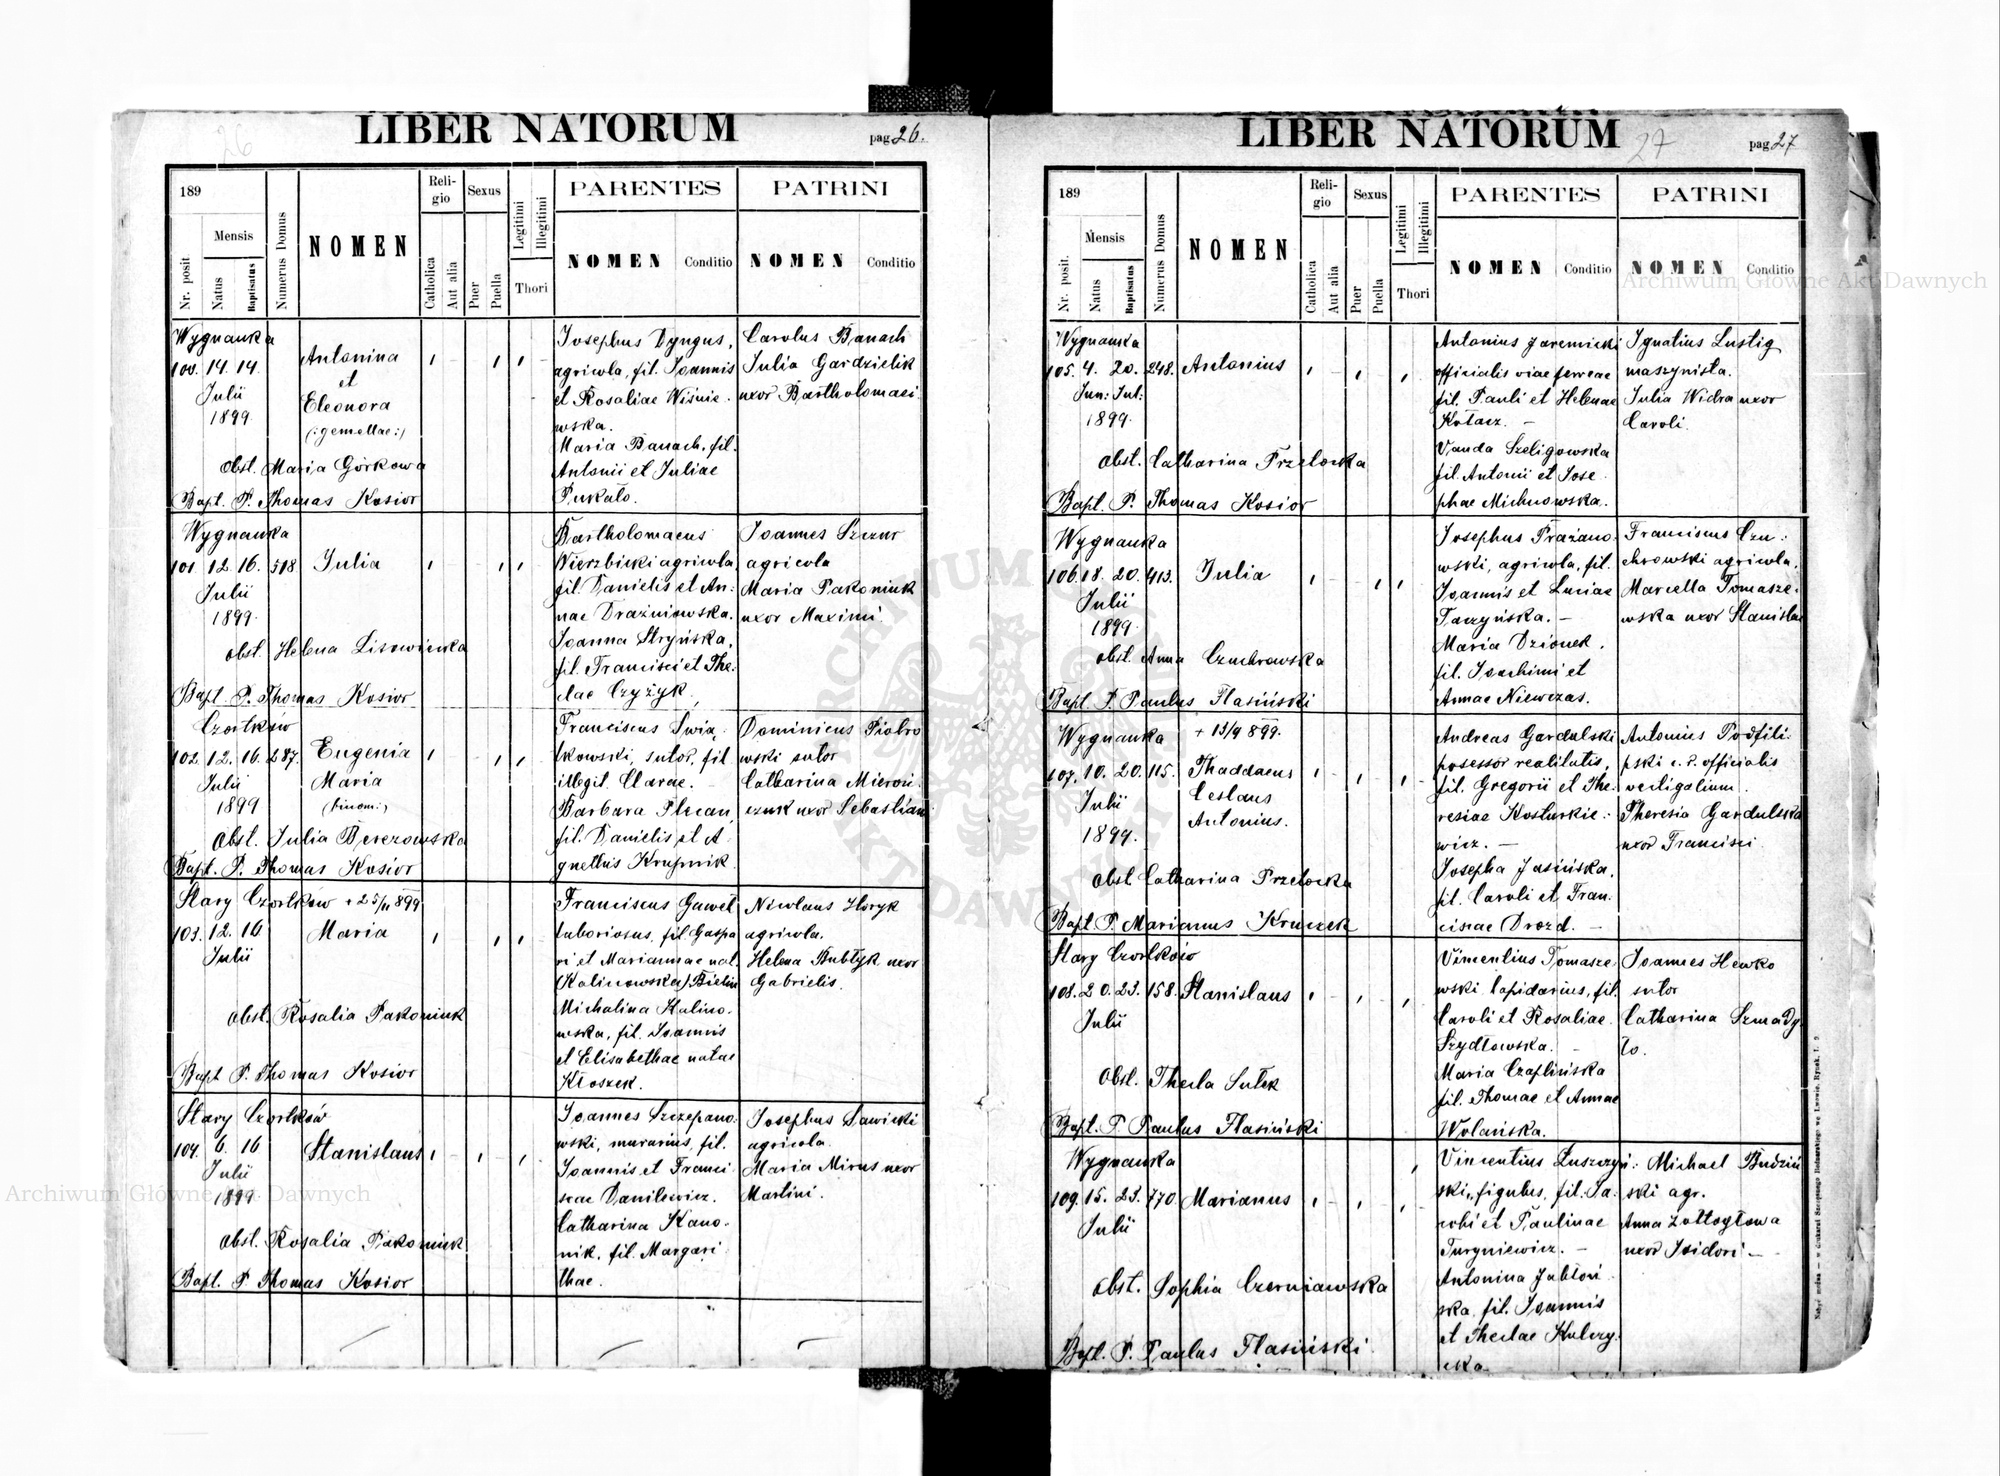 LIBER NATORUM
pag 26.
26
189
Mensis
Nr. posit.
Natus
Baptisatus
Numerus Domus
NOMEN
Religio
Catholica
Aut alia
Sexus
Puer
Puella
Legitimi
Illegitimi
Thori
PARENTES
NOMEN
Conditio
PATRINI
NOMEN
Conditio
Wygnanka
100. 14. 14.
Julii
1899.
Antonina
et
Eleonora
(:gemellae:)
Obst. Maria Górkowa
Bapt. P. Thomas Kosior
Josephus Dyngus,
agricola, fil. Joannis
et Rosaliae Wiśnie-
wska.
Maria Banach, fil.
Antonii et Juliae
Pukało.
Carolus Banach
Julia Gardzielik
uxor Bartholomaei
Wygnanka
101 12. 16. 518. Julia
Julii
1899.
obst. Helena Lisowienka
Bapt. P. Thomas Kosior
Bartholomaeus
Wierzbicki agricola,
fil. Danielis et An:
nae Drażniowska.
Joanna Stryńska,
fil. Francisci et The:
clae Czyżyk.
Joannes Szczur
agricola
Maria Pakoniuk
uxor Maximi.
Czortków
102. 12. 16. 287. Eugenia
Julii
1899
Maria
(binom:)
Obst. Julia Berezowska
Bapt. P. Thomas Kosior
Franciscus Świą:
tkowski, sutor, fil
illegit. Clarae. -
Barbara Plecan,
fil. Danielis et A-
gnethis Krupnik
Dominicus Piotro
wski sutor
Catharina Mieroń:
czuk uxor Sebastiani
Stary Czortków + 25/11 899
103. 12. 16 Maria
Julii
obst. Rosalia Pakoniuk
Bapt P. Thomas Kosior
Franciscus Gaweł
laboriosus, fil. Gaspa
ri et Mariannae nat.
(Kalinowska) Bielin
Michalina Kalino-
wska, fil. Joannis
et Elisabethae natae
Kłoszek.
Nicolaus Horyk
agricola.
Helena Bubłyk uxor
Gabrielis.
Stary Czortków
104. 6. 16 Stanislaus
Julii
1899
obst. Rosalia Pakoniuk
Bapt. P Thomas Kosior
Joannes Szczepano-
wski, murarius, fil.
Joannis et Franci:
scae Danilewicz.
Catharina Kano-
nik, fil. Margari:
thae.
Josephus Sawicki
agricola.
Maria Mirus uxor
Martini.
LIBER NATORUM
pag 27
27
189
Mensis
Nr. posit.
Natus
Baptisatus
Numerus Domus
NOMEN
Religio
Catholica
Aut alia
Sexus
Puer
Puella
Legitimi
Illegitimi
Thori
PARENTES
NOMEN
Conditio
PATRINI
NOMEN
Conditio
Wygnanka
105. 4. 20. 248. Antonius
Jun: Jul:
1899.
Obst. Catharina Przelocka
Bapt. P. Thomas Kosior
Antonius Jaremicki
officialis viae ferreae
fil. Pauli et Helenae
Kołacz. -
Vanda Szeligowska
fil. Antonii et Jose-
phae Michnowska.
Ignatius Lustig
maszynista.
Julia Widra uxor
Caroli.
Wygnanka
106. 18. 20. 413. Julia
Julii
1899
obst. Anna Czuchrowska
Bapt. P. Paulus Flasiński
Josephus Prażano-
wski, agricola, fil.
Joannis et Luciae
Taczyńska. -
Maria Dzionek,
fil. Joachimi et
Annae Niewczas.
Franciscus Czu:
chrowski agricola,
Marcella Tomasze:
wska uxor Stanislai
Wygnanka + 13/9 899.
107. 10. 20. 115. Thaddaeus
Julii
1899.
Ceslaus
Antonius.
Obst Catharina Przelocka
Bapt P. Marianus Kruczek
Andreas Gardulski
posessor realitatis,
fil. Gregorii et The:
resiae Kosturkie:
wicz. -
Josepha Jasińska,
fil. Caroli et Fran:
ciscae Drozd. -
Antonius Podfili:
pski c. r. officialis
vectigalium.
Theresia Gardulska
uxor Francisci
Stary Czortków
108. 20. 23. 158. Stanislaus
Julii
Obst. Thecla Sułek
Bapt. P. Paulus Flasiński
Vincentius Tomasze-
wski lapidarius, fil.
Caroli et Rosaliae
Szydłowska. -
Maria Czaplińska
fil. Thomae et Annae
Wolańska.
Joannes Hewko
sutor
Catharina Szmady
ło.
Wygnanka
109. 15. 23. 770 Marianus
Julii
Obst. Sophia Czerniawska
Bapt. P. Paulus Flasiński
Vincentius Łuszczyń:
ski, figulus, fil. Ja-
cobi et Paulinae
Turyniewicz. -
Antonina Jabłoń-
ska, fil. Joannis
et Theclae Kulczy-
cka
Michael Budziń
ski agr.
Anna Żołtogłowa
uxor Isidori -
Archiwum Główne Akt Dawnych
Archiwum Główne Akt Dawnych
ARCHIWUM GŁÓWNE AKT DAWNYCH